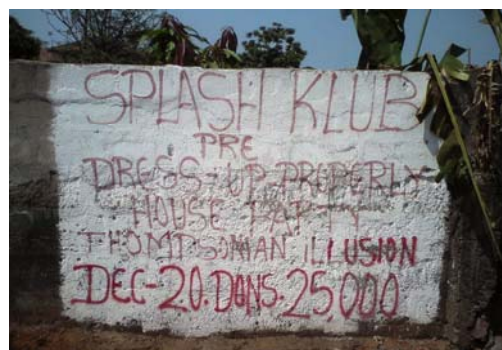 SPLASH KLUB
PRE
DRESS-UP-PROPERLY
HOUSE PARTY
THOMPSONIAN ILLUSION
DEC-20. DONS. 25000